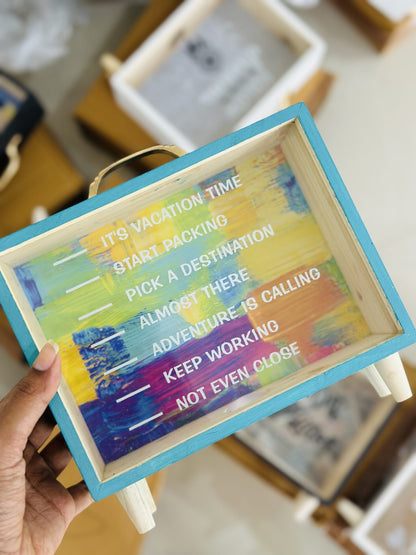 IT'S VACATION TIME
START PACKING
PICK A DESTINATION
ALMOST THERE
ADVENTURE IS CALLING
KEEP WORKING
NOT EVEN CLOSE